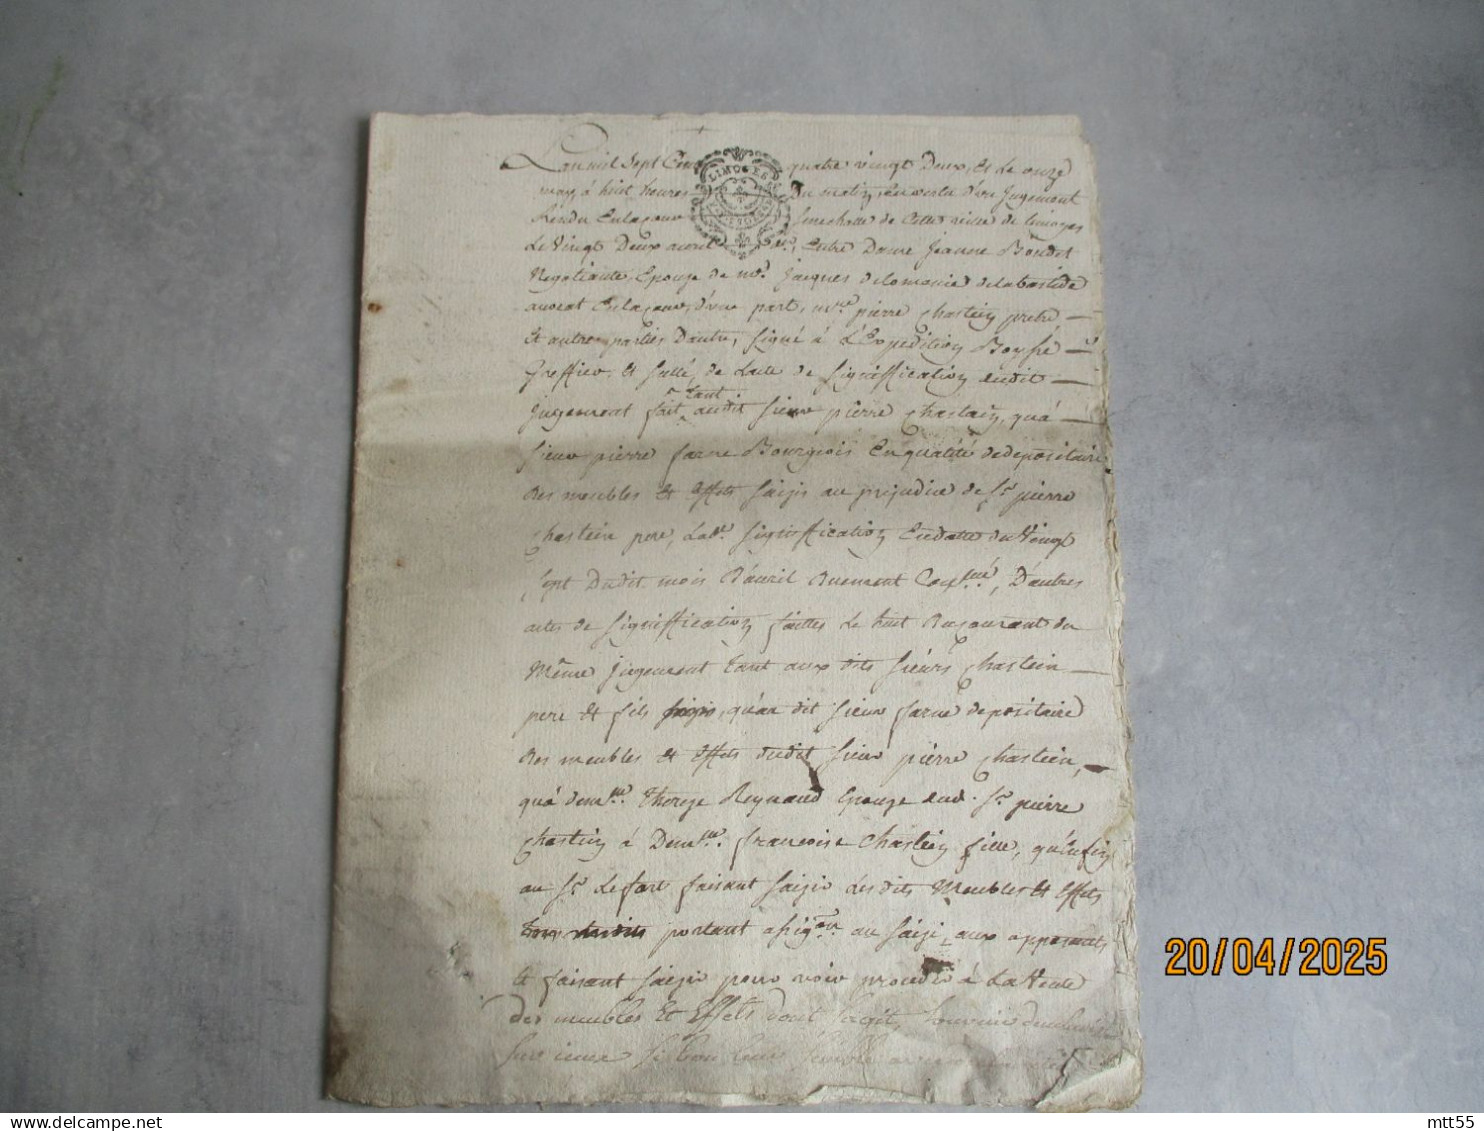 L'an mil Sept Cent quatre vingt Deux, et Le onze
may, à huit heures Du matin, En vertu d'un Jugement
Rendu En la cour Senechalle de Cette ville de Limoges
Le Vingt Deux avril Entre Dame Jeanne Boudet
Negotiante, Epouze de mr. Jacques delomenie de labastide
avocat En la cour, d'une part, mre pierre Chastein pretre
Et autres parties D'autre, Signé à L'Expedition Boysse
Greffier, Et Scellé, de Lacte de Signiffication dudit
jugement fait tant audit Sieur pierre Chastein, qu'a
Sieur pierre farne Bourgeois En qualité de depositaire
Des meubles Et Effets Saizis au préjudice de Sr. pierre
Chastein pere, Lad. Signiffication En datte du Vingt
Sept Dudit mois D'avril Duement Con.lé, D'autres
actes de Signiffication faittes Le huit Du courant du
Même jugement tant aux dits Sieurs Chastein
pere Et fils, qu'au dit Sieur farne depositaire
Des meubles Et Effets dudit Sieur pierre Chastein,
qu'a demlle. Thereze Reynaud Epouze dud. Sr. pierre
Chastein à Demlle. francoise Chastein fille, qu'Enfin
au Sr. Lefort faisant Saizir Les dits Meubles Et Effets
portant assig.on au Saizi, aux opposants
Et faisant Saizir pour voir proceder à La Vente
Des meubles Et Effets dont S'agit,
Sur iceux Si bon leur Semble
LIMOGES
20/04/2025
mtt55